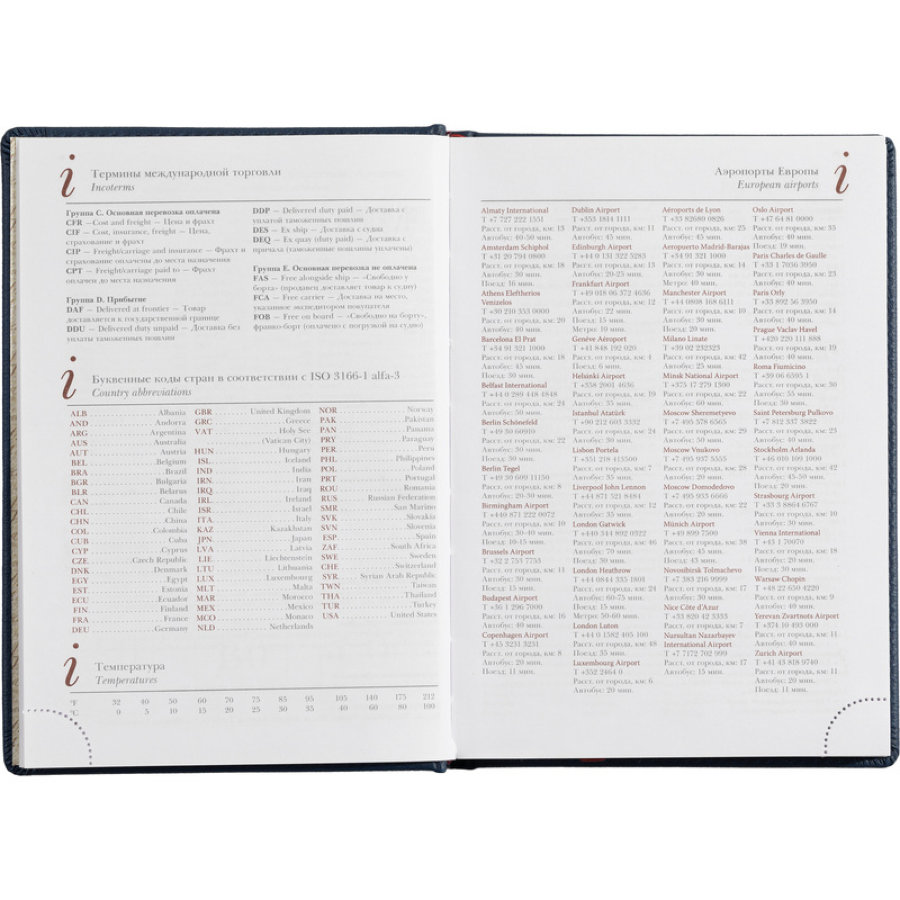 Термины международной торговли
Incoterms
Группа C. Основная перевозка оплачена
CFR —Cost and freight — Цена и фрахт
CIF — Cost, insurance, freight — Цена,
страхование и фрахт
CIP — Freight/carriage and insurance — Фрахт и
страхование оплачены до места назначения
CPT — Freight/carriage paid to — Фрахт
оплачен до места назначения
Группа D. Прибытие
DAF — Delivered at frontier — Товар
доставляется к государственной границе
DDU — Delivered duty unpaid — Доставка без
уплаты таможенных пошлин
DDP — Delivered duty paid — Доставка с
уплатой таможенных пошлин
DES — Ex ship — Доставка с судна
DEQ — Ex quay (duty paid) — Доставка с
причала (таможенные пошлины уплачены)
Группа E. Основная перевозка не оплачена
FAS — Free alongside ship — «Свободно у
борта» (продавец доставляет товар к судну)
FCA — Free carrier — Доставка на место,
указанное экспедитором покупателя
FOB — Free on board — «Свободно на борту»,
франко-борт (оплачено с погрузкой на судно)
Буквенные коды стран в соответствии с ISO 3166-1 alfa-3
Country abbreviations
ALB Albania
AND Andorra
ARG Argentina
AUS Australia
AUT Austria
BEL Belgium
BRA Brazil
BGR Bulgaria
BLR Belarus
CAN Canada
CHL Chile
CHN China
COL Colombia
CUB Cuba
CYP Cyprus
CZE Czech Republic
DNK Denmark
EGY Egypt
EST Estonia
ECU Ecuador
FIN Finland
FRA France
DEU Germany
GBR United Kingdom
GRC Greece
VAT Holy See
(Vatican City)
HUN Hungary
ISL Iceland
IND India
IRN Iran
IRQ Iraq
IRL Ireland
ISR Israel
ITA Italy
KAZ Kazakhstan
JPN Japan
LVA Latvia
LIE Liechtenstein
LTU Lithuania
LUX Luxembourg
MLT Malta
MAR Morocco
MEX Mexico
MCO Monaco
NLD Netherlands
NOR Norway
PAK Pakistan
PAN Panama
PRY Paraguay
PER Peru
PHL Philippines
POL Poland
PRT Portugal
ROU Romania
RUS Russian Federation
SMR San Marino
SVK Slovakia
SVN Slovenia
ESP Spain
ZAF South Africa
SWE Sweden
CHE Switzerland
SYR Syrian Arab Republic
TWN Taiwan
THA Thailand
TUR Turkey
USA United States
Температура
Temperatures
°F 32 40 50 60 70 75 85 95 105 140 175 212
°C 0 5 10 15 20 25 30 35 40 60 80 100
Аэропорты Европы
European airports
Almaty International
T +7 727 222 1551
Расст. от города, км: 13
Автобус: 40-50 мин.
Amsterdam Schiphol
T +31 20 794 0800
Расст. от города, км: 18
Автобус: 30 мин.
Поезд: 16 мин.
Athens Eleftherios
Venizelos
T +30 210 353 0000
Расст. от города, км: 20
Автобус: 40 мин.
Barcelona El Prat
T +34 91 321 1000
Расст. от города, км: 18
Автобус: 45 мин.
Поезд: 30 мин.
Belfast International
T +44 0 289 448 4848
Расст. от города, км: 24
Автобус: 50 мин.
Berlin Schönefeld
T +49 30 60910
Расст. от города, км: 22
Автобус: 50 мин.
Поезд: 30 мин.
Berlin Tegel
T +49 30 609 11150
Расст. от города, км: 8
Автобус: 20-30 мин.
Birmingham Airport
T +440 871 222 0072
Расст. от города, км: 10
Автобус: 30-40 мин.
Поезд: 10 мин.
Brussels Airport
T +32 2 753 7753
Расст. от города, км: 11
Автобус: 30 мин.
Поезд: 15 мин.
Budapest Airport
T +36 1 296 7000
Расст. от города, км: 16
Автобус: 40 мин.
Copenhagen Airport
T +45 3231 3231
Расст. от города, км: 8
Автобус: 20 мин.
Поезд: 11 мин.
Dublin Airport
T +353 1814 1111
Расст. от города, км: 11
Автобус: 45 мин.
Edinburgh Airport
T +44 0 131 322 5283
Расст. от города, км: 13
Автобус: 20-25 мин.
Frankfurt Airport
T +49 018 06 372 4636
Расст. от города, км: 12
Автобус: 22 мин.
Поезд: 15 мин.
Метро: 10 мин.
Genève Aéroport
T +41 848 192 020
Расст. от города, км: 4
Поезд: 6 мин.
Helsinki Airport
T +358 2001 4636
Расст. от города, км: 19
Автобус: 35 мин.
Istanbul Atatürk
T +90 212 603 3332
Расст. от города, км: 24
Автобус: 30 мин.
Lisbon Portela
T +351 218 413500
Расст. от города, км: 7
Автобус: 35 мин.
Liverpool John Lennon
T +44 871 521 8484
Расст. от города, км: 12
Автобус: 35 мин.
London Gatwick
T +440 344 892 0322
Расст. от города, км: 46
Автобус: 70 мин.
Поезд: 30 мин.
London Heathrow
T +44 0844 335 1801
Расст. от города, км: 28
Автобус: 60-75 мин.
Поезд: 15 мин.
Метро: 50-60 мин.
London Luton
T +44 0 1582 405 100
Расст. от города, км: 48
Поезд: 35 мин.
Luxembourg Airport
T +352 2464 0
Расст. от города, км: 6
Автобус: 20 мин.
Aéroports de Lyon
T +33 82680 0826
Расст. от города, км: 25
Автобус: 45 мин.
Aeropuerto Madrid-Barajas
T +34 91 321 1000
Расст. от города, км: 14
Метро: 40 мин.
Manchester Airport
T +44 0808 168 6111
Расст. от города, км: 10
Поезд: 20 мин.
Milano Linate
T +39 02 232323
Расст. от города, км: 42
Автобус: 25 мин.
Minsk National Airport
T +375 17 279 1300
Расст. от города, км: 42
Автобус: 60 мин.
Moscow Sheremetyevo
T +7 495 578 6565
Расст. от города, км: 29
Автобус: 50 мин.
Moscow Vnukovo
T +7 495 937 5555
Расст. от города, км: 28
Автобус: 40 мин.
Moscow Domodedovo
T +7 495 933 6666
Расст. от города, км: 22
Автобус: 20 мин.
Münich Airport
T +49 899 7500
Расст. от города, км: 38
Автобус: 45 мин.
Поезд: 45 мин.
Novosibirsk Tolmachevo
T +7 383 216 9999
Расст. от города, км: 17
Автобус: 30 мин.
Nice Côte d'Azur
T +33 820 42 3333
Расст. от города, км: 7
Nursultan Nazarbayev
International Airport
T +7 7172 702 999
Расст. от города, км: 17
Автобус: 15 мин.
Oslo Airport
T +47 64 81 0000
Расст. от города, км: 35
Автобус: 40 мин.
Поезд: 19 мин.
Paris Charles de Gaulle
T +33 1 7036 3950
Расст. от города, км: 23
Автобус: 40 мин.
Paris Orly
T +33 892 56 3950
Расст. от города, км: 14
Автобус: 40 мин.
Prague Vaclav Havel
T +420 220 111 888
Расст. от города, км: 19
Автобус: 40 мин.
Roma Fiumicino
T +39 06 6595 1
Расст. от города, км: 30
Поезд: 30 мин.
Saint Petersburg Pulkovo
T +7 812 337 3822
Расст. от города, км: 23
Автобус: 40 мин.
Stockholm Arlanda
T +46 010 109 1000
Расст. от города, км: 42
Автобус: 45-50 мин.
Поезд: 20 мин.
Strasbourg Airport
T +33 3 8864 6767
Расст. от города, км: 10
Автобус: 30 мин.
Vienna International
T +43 1 70070
Расст. от города, км: 18
Автобус: 20 мин.
Поезд: 30 мин.
Warsaw Chopin
T +48 22 650 4220
Расст. от города, км: 9
Автобус: 40 мин.
Yerevan Zvartnots Airport
T +374 10 493 000
Расст. от города, км: 11
Автобус: 40 мин.
Zurich Airport
T +41 43 818 9740
Расст. от города, км: 11
Автобус: 20 мин.
Поезд: 11 мин.